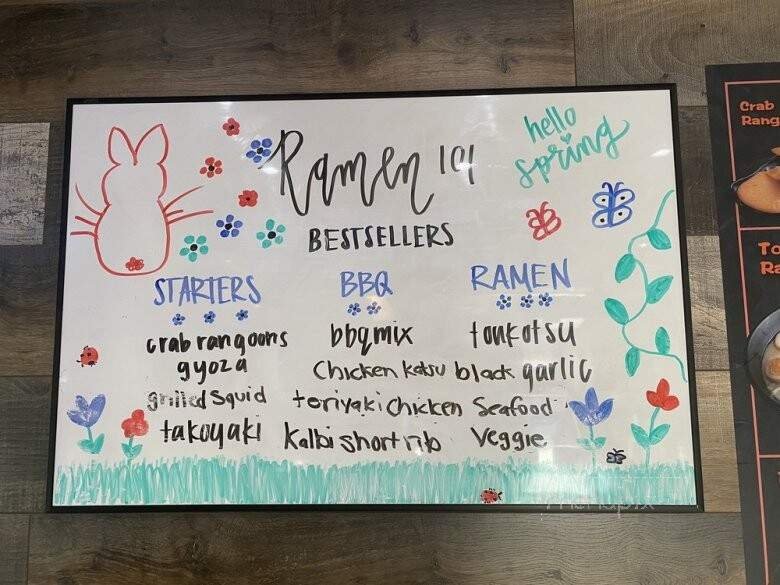 Ramen 101
hello
spring
BESTSELLERS
STARTERS
crab rangoons
gyoza
grilled squid
takoyaki
BBQ
bbq mix
Chicken katsu
teriyaki Chicken
Kalbi short rib
RAMEN
tonkotsu
black garlic
Seafood
Veggie
Crab
Rang
To
Ra